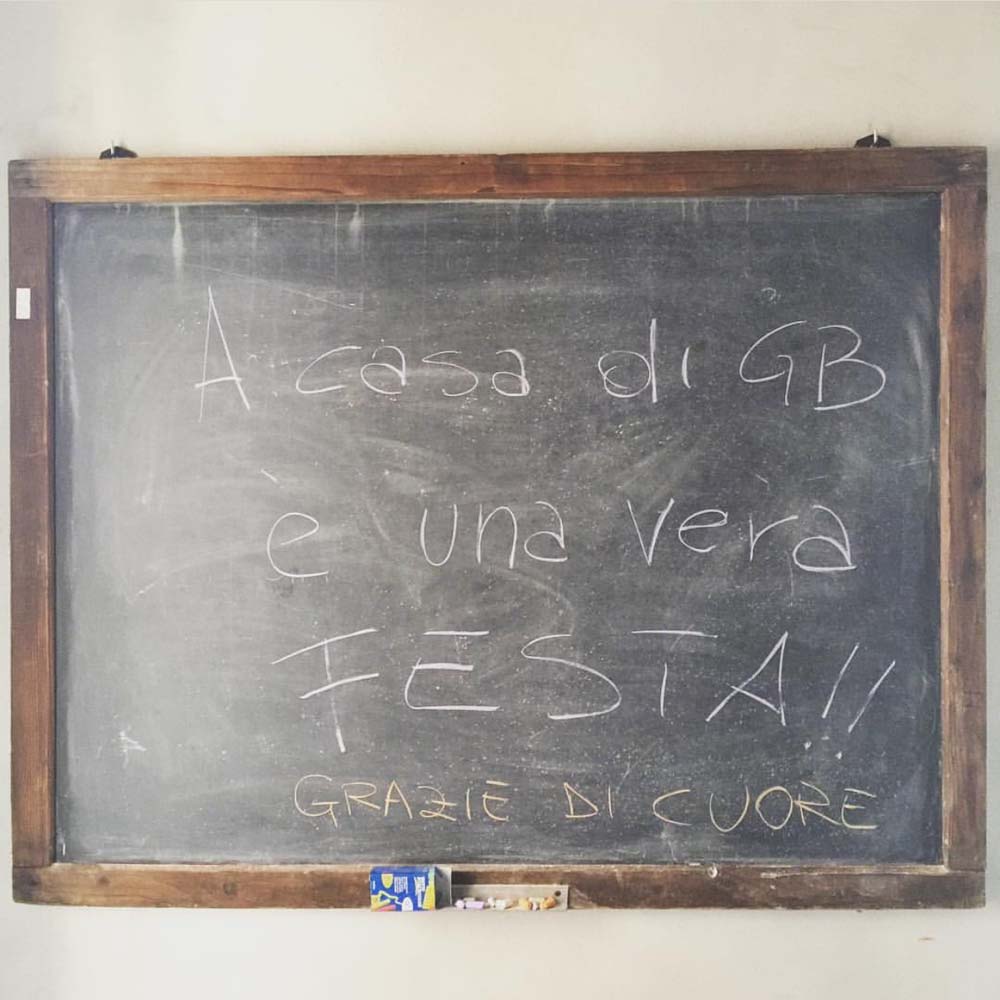 A casa di GB
è una vera
FESTA!!
GRAZIE DI CUORE